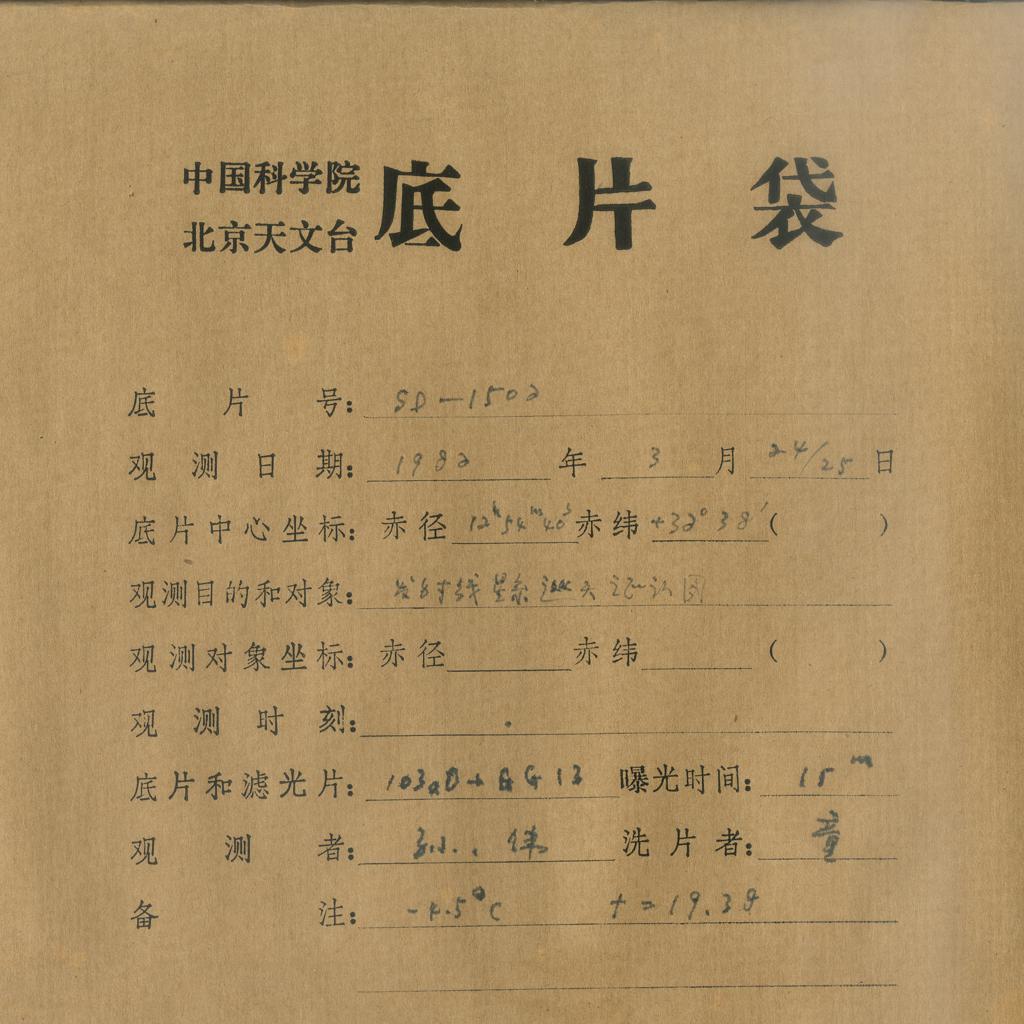 中国科学院
北京天文台
底片袋
底片号：SD-1502
观测日期：1982年3月24/25日
底片中心坐标：赤径12ʰ54ᵐ40ˢ赤纬+32°38′（ ）
观测目的和对象：发射线星系巡天证认图
观测对象坐标：赤径 赤纬 （ ）
观测时刻：
底片和滤光片：103aD+GG13 曝光时间：15ᵐ
观测者：孙、 洗片者：童
备注：-4.5°C t=19.38